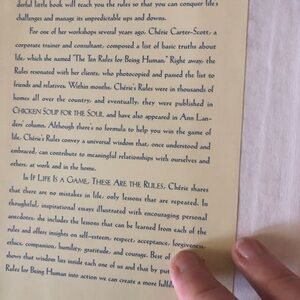 derful little book will teach you the rules so that you can conquer life's
challenges and manage its unpredictable ups and downs.
For one of her workshops several years ago, Chérie Carter-Scott, a
corporate trainer and consultant, composed a list of basic truths about
life, which she named "The Ten Rules for Being Human." Right away, the
Rules resonated with her clients, who photocopied and passed the list to
friends and relatives. Within months, Chérie's Rules were in thousands of
homes all over the country, and eventually, they were published in
CHICKEN SOUP FOR THE SOUL, and have also appeared in Ann Lan-
ders' column. Although there's no formula to help you win the game of
life, Chérie's Rules convey a universal wisdom that, once understood and
embraced, can contribute to meaningful relationships with ourselves and
others, at work and in the home.
In IF LIFE IS A GAME, THESE ARE THE RULES, Chérie shares
that there are no mistakes in life, only lessons that are repeated. In
thoughtful, inspirational essays illustrated with encouraging personal
anecdotes, she includes the lessons that can be learned from each of the
rules and offers insights on self-esteem, respect, acceptance, forgiveness,
ethics, companion, humility, gratitude, and courage. Best of
shows that wisdom lies inside each one of us and that by put
Rules for Being Human into action we can create a more fulfil